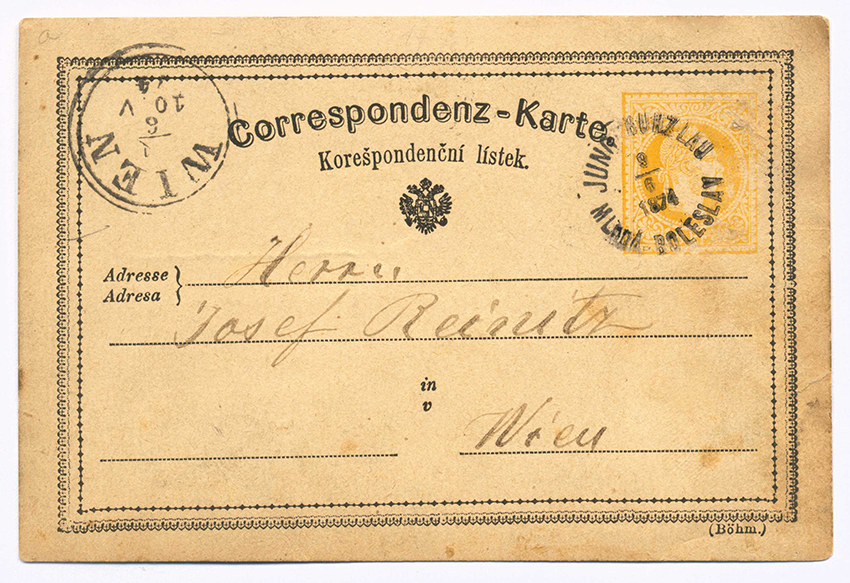 Correspondenz-Karte.
Korešpondenční lístek.
WIEN
10
V
JUNGBUNZLAU
9/6
1874
MLADÁ-BOLESLAV
Adresse
Adresa
Herrn
Josef Reinitz
in
v
Wien
(Böhm.)